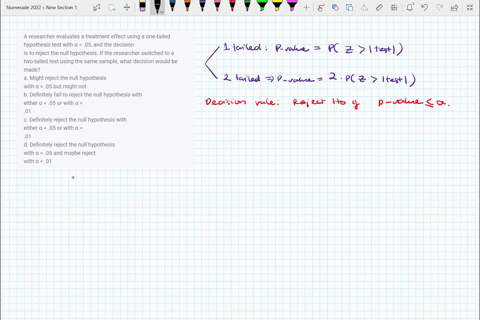 Numerade 2022 » New Section 1
A researcher evaluates a treatment effect using a one-tailed
hypothesis test with α = .05, and the decision
is to reject the null hypothesis. If the researcher switched to a
two-tailed test using the same sample, what decision would be
made?
a. Might reject the null hypothesis
with α = .05 but might not
b. Definitely fail to reject the null hypothesis with
either α = .05 or with α =
.01
c. Definitely reject the null hypothesis with
either α = .05 or with α =
.01
d. Definitely reject the null hypothesis
with α = .05 and maybe reject
with α = .01
1 tailed: P-value = P( Z > |test|)
2 tailed => P-value = 2. P( Z > |test|)
Decision rule: Reject Ho if p-value ≤ α.